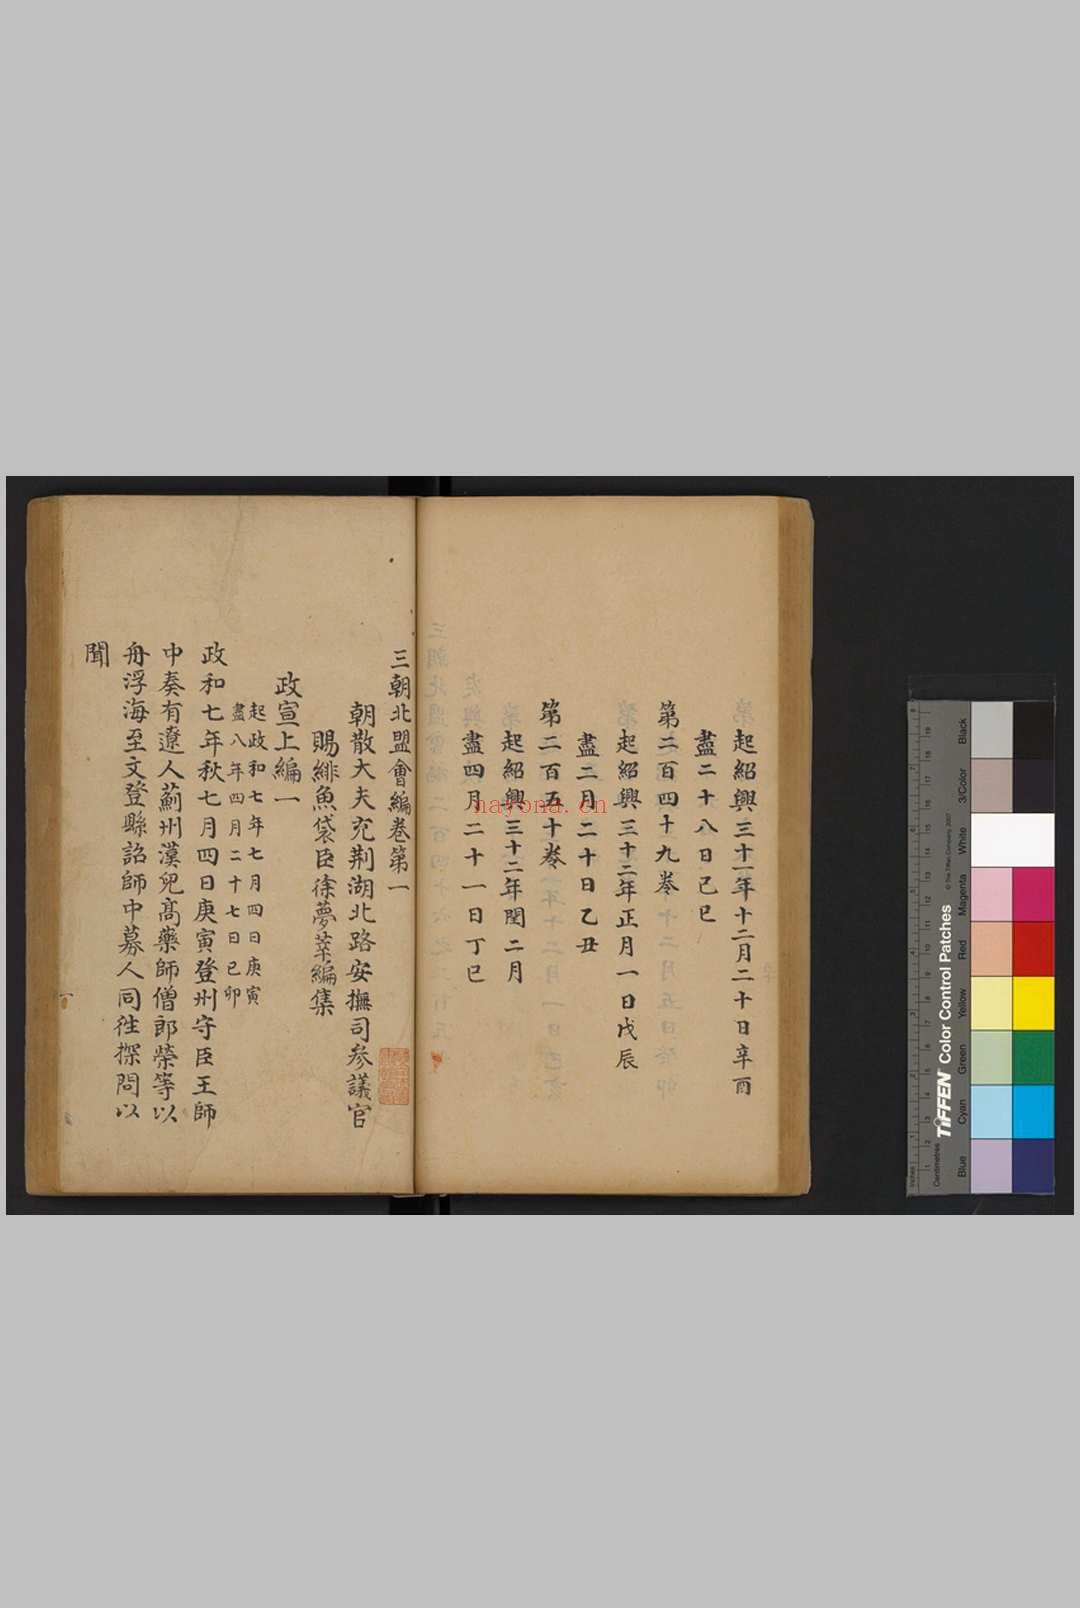 起紹興三十一年十二月二十日辛酉
盡二十八日己巳
第二百四十九卷
起紹興三十二年正月一日戊辰
盡二月二十日乙丑
第二百五十卷
起紹興三十二年閏二月
盡四月二十一日丁巳
三朝北盟會編卷第一
朝散大夫充荆湖北路安撫司參議官
賜緋魚袋臣徐夢莘編集
政宣上編一
起政和七年七月四日庚寅
盡八年四月二十七日己卯
政和七年秋七月四日庚寅登州守臣王師
中奏有遼人薊州漢兒高藥師僧郎榮等以
舟浮海至文登縣詔師中募人同往探問以
聞
nayona.cn
Black
3/Color
White
Magenta
Red
Yellow
Green
Cyan
Blue
TIFFEN Color Control Patches
© The Tiffen Company, 2007
Centimetres
Inches